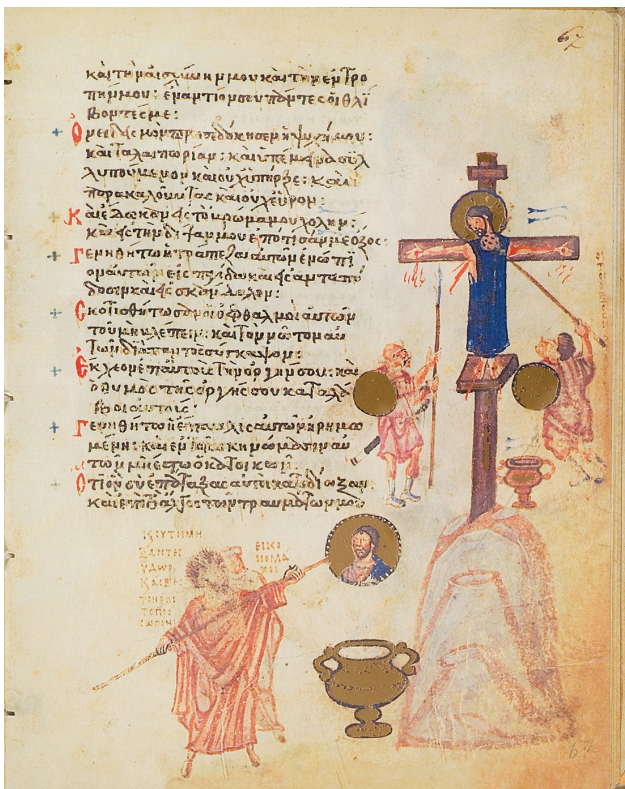 67
καὶ τὴν αἰσχύνην μου καὶ τὴν ἐντρο
πήν μου: ἐναντίον σου πάντες οἱ θλί
βοντές με:
Ὀνειδισμὸν προσεδόκησεν ἡ ψυχή μου:
καὶ ταλαιπωρίαν: καὶ ὑπέμεινα συλ
λυπούμενον καὶ οὐχ ὑπῆρξε: καὶ
παρακαλοῦντας καὶ οὐχ εὗρον:
Καὶ ἔδωκαν εἰς τὸ βρῶμά μου χολήν:
καὶ εἰς τὴν δίψαν μου ἐπότισάν με ὄξος:
Γενηθήτω ἡ τράπεζα αὐτῶν ἐνώπι
ον αὐτῶν εἰς παγίδα καὶ εἰς ἀνταπό
δοσιν καὶ εἰς σκάνδαλον:
Σκοτισθήτωσαν οἱ ὀφθαλμοὶ αὐτῶν
τοῦ μὴ βλέπειν: καὶ τὸν νῶτον αὐ
τῶν διὰ παντὸς σύγκαμψον:
Ἔκχεον ἐπ' αὐτοὺς τὴν ὀργήν σου: καὶ
ὁ θυμὸς τῆς ὀργῆς σου καταλά
βοι αὐτούς:
Γενηθήτω ἡ ἔπαυλις αὐτῶν ἠρημω
μένη: καὶ ἐν τοῖς σκηνώμασιν αὐ
τῶν μὴ ἔστω ὁ κατοικῶν:
Ὅτι ὃν σὺ ἐπάταξας αὐτοὶ κατεδίωξαν:
καὶ ἐπὶ τὸ ἄλγος τῶν τραυμάτων μου
ΕΙΚΟ
ΝΟΜΑ
ΧΟΙ
ΥΔΩΡ
67